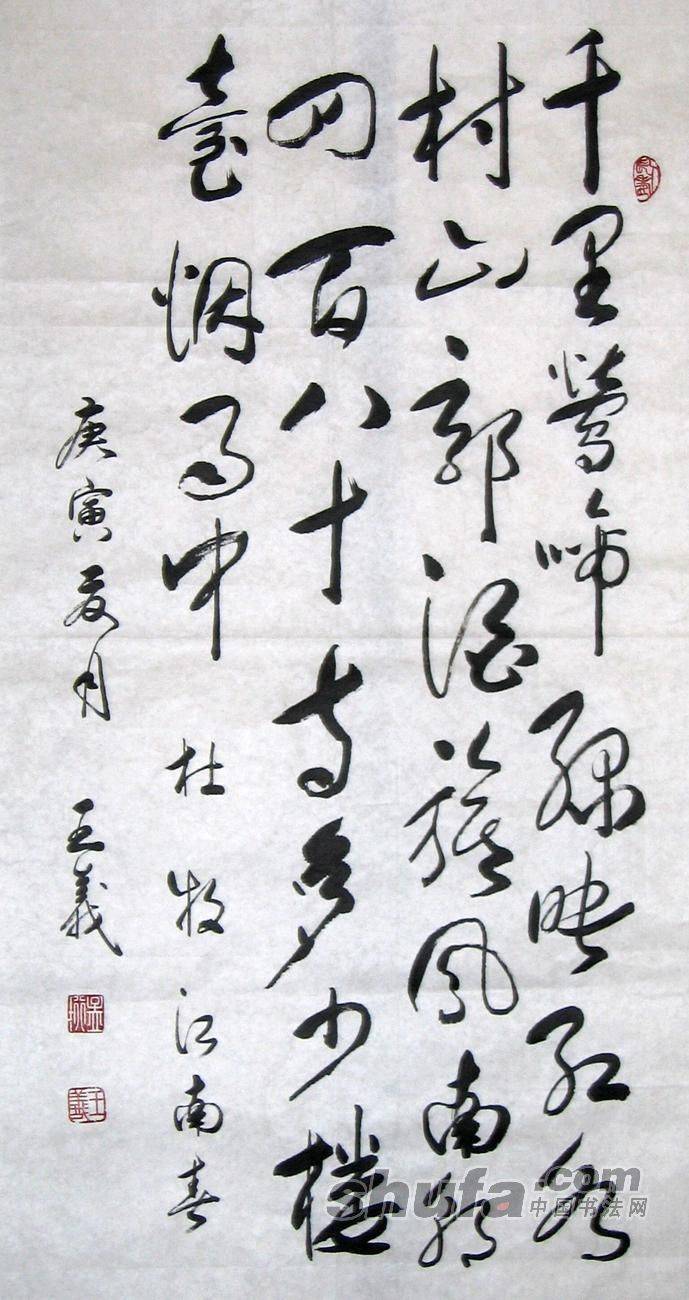 千里鶯啼綠映紅水
村山郭酒旗風南朝
四百八十寺多少樓
臺烟雨中 杜牧 江南春
庚寅夏月 王義
王義
shufa.com
中国书法网